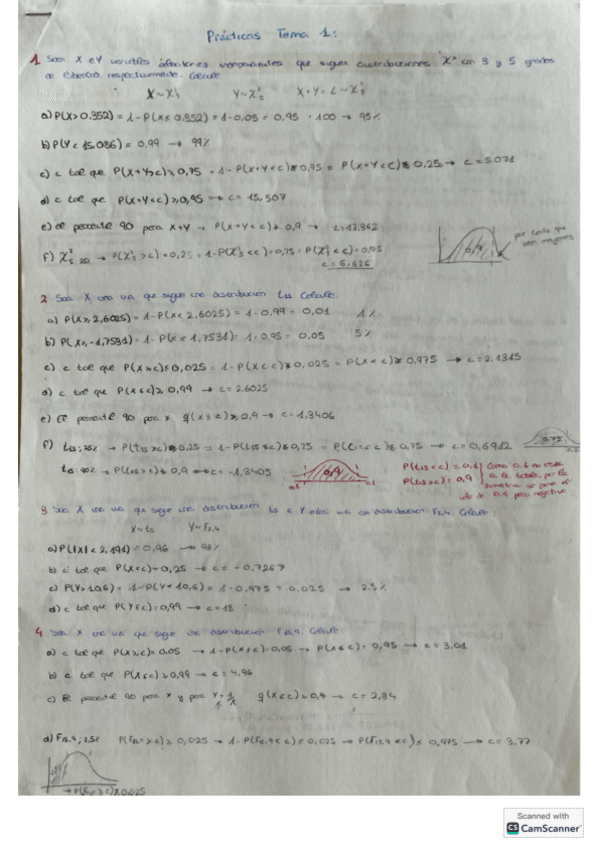 Prácticas Tema 1:
1. Sean X e Y variables aleatorias independientes que siguen distribuciones X² con 3 y 5 grados
de libertad respectivamente. Calcule
X ~ X²₃ Y ~ X²₅ X + Y = L ~ X²₈
a) P(X > 0,352) = 1 - P(X ≤ 0,352) = 1 - 0,05 = 0,95 · 100 → 95%
b) P(Y < 15,086) = 0,99 → 99%
c) c tal que P(X+Y > c) ≥ 0,75 = 1 - P(X+Y < c) ≥ 0,75 = P(X+Y < c) ≤ 0,25 → c = 5,071
d) c tal que P(X+Y < c) ≥ 0,95 → c = 15,507
e) El percentil 90 para X+Y → P(X+Y < c) ≥ 0,9 → c = 13,362
por tanto que
sean mayores
f) P(X²₅ > c) = 0,25 = 1 - P(X²₅ < c) = 0,25 = P(X²₅ < c) =
c = 6,626
2. Sea X una va que sigue una distribución t₁₅. Calcule.
a) P(X ≥ 2,6025) = 1 - P(X < 2,6025) = 1 - 0,99 = 0,01 1%
b) P(X ≥ -1,7531) = 1 - P(X < 1,7531) = 1 - 0,95 = 0,05 5%
c) c tal que P(X ≥ c) ≤ 0,025 = 1 - P(X < c) ≤ 0,025 = P(X < c) ≥ 0,975 → c = 2,1315
d) c tal que P(X ≤ c) ≥ 0,99 → c = 2,6025
e) El percentil 90 para X P(X ≤ c) ≥ 0,9 → c = 1,3406
f) → P(t₁₅ > c) ≥ 0,25 = 1 - P(t₁₅ ≤ c) ≥ 0,25 = P(t₁₅ < c) ≤ 0,75 → c = 0,6912
0,75
→ P(t₁₅ > c) ≥ 0,9 → c = -1,3405
P(t₁₅ < c) = 0,1 Como 0,1 no está
P(t₁₅ > c) = 0,9 en la tabla, por la
simetría se pone el
de 0,9 pero negativo
3. Sea X una va que sigue una distribución t₅ e Y otra va con distribución F₂,₄. Calcule:
X ~ t₅ Y ~ F₂,₄
a) P(|X| < 2,191) = 0,96 → 96%
b) c tal que P(X < c) = 0,25 → c = -0,7267
c) P(Y > 10,6) = 1 - P(Y < 10,6) = 1 - 0,975 = 0,025 → 2,5%
d) c tal que P(Y ≤ c) = 0,99 → c = 18
4. Sea X una va que sigue una distribución Calcule
a) c tal que P(X ≥ c) = 0,05 → 1 - P(X ≤ c) = 0,05 → P(X ≤ c) = 0,95 → c = 3,01
b) c tal que P(X ≤ c) ≥ 0,99 → c = 4,96
c) El percentil 90 para X y para Y = 1/X P(X ≤ c) ≥ 0,9 → c = 2,34
d) → 1 - ≤ 0,025 → ≤ 0,975 → c = 3,77
Scanned with
CS CamScanner